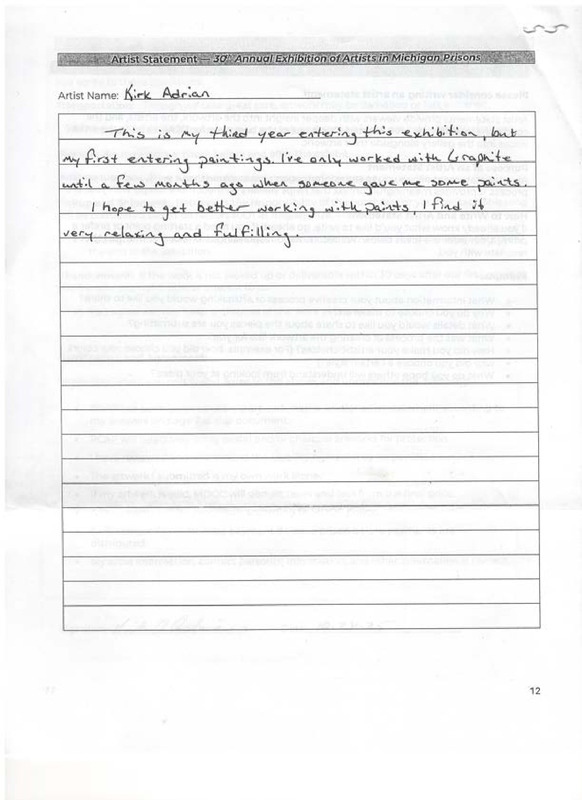 Artist Statement — 30th Annual Exhibition of Artists in Michigan Prisons
Artist Name: Kirk Adrian
This is my third year entering this exhibition, but
my first entering paintings. I've only worked with Graphite
until a few months ago when someone gave me some paints.
I hope to get better working with paints, I find it
very relaxing and fulfilling.
12